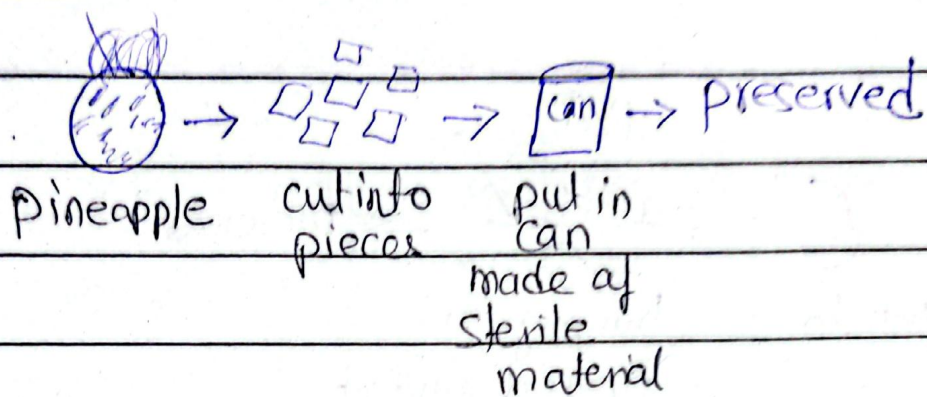 can → preserved
pineapple cut into put in
pieces can
made of
sterile
material